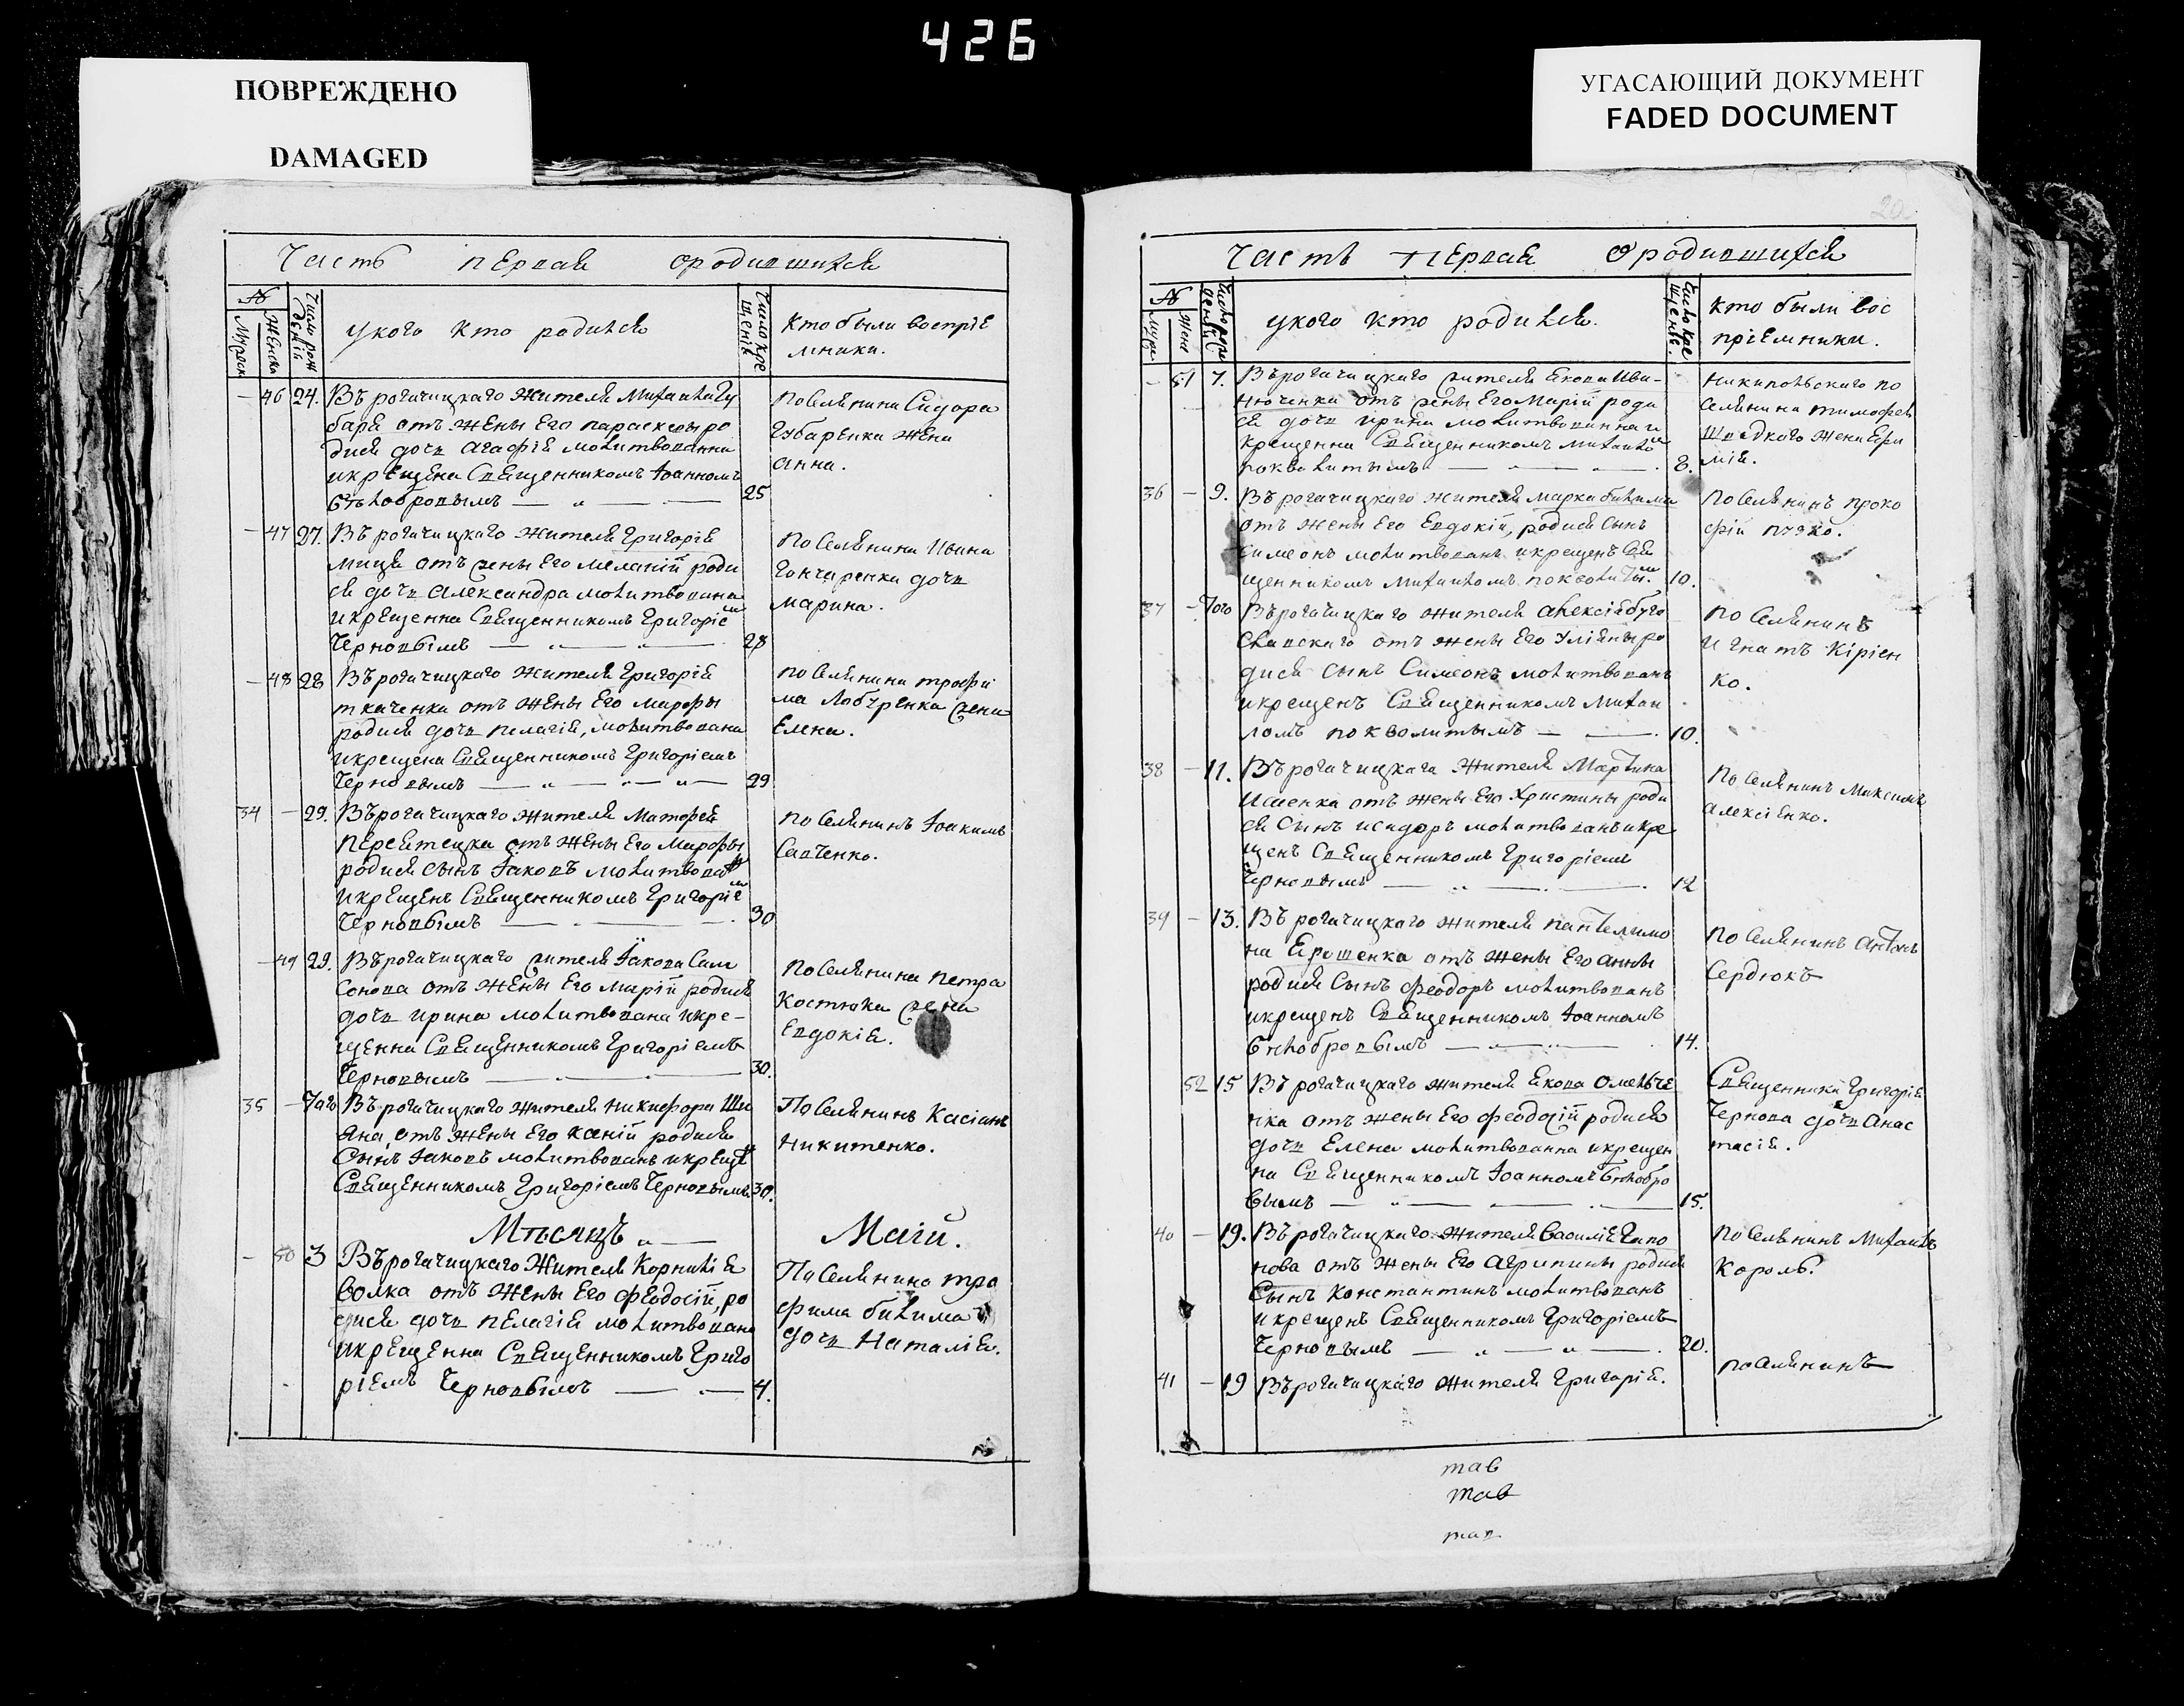 426
ПОВРЕЖДЕНО
DAMAGED
УГАСАЮЩИЙ ДОКУМЕНТ
FADED DOCUMENT
Часть первая ородившихся
№
Мужеск
Женска
Число рож
деній
укого кто родился
Число кре
щенія
Кто были воспріе
мники.
— 46 24. Въ рогачицкаго жителя Михаила Гу
баря отъ жены Его параскевы ро
дися дочь агафія молитвованна
икрещена Священникомъ Іоанномъ
Бѣлобровымъ — „ — 25
Поселянина Сидора
Губаренка жена
анна.
— 47 27. Въ рогачицкаго жителя Григорія
мища отъ жены Его меланіи роди
ся дочь александра молитвована
икрещенна Священникомъ Григоріем
Черновымъ — „ — „ — 28
Поселянина Ивана
Гончаренка дочь
марина.
— 48 28 Въ рогачицкаго жителя Григорія
ткаченка отъ жены Его марфы
родися дочь пелагія, молитвована
икрещена Священникомъ Григоріемъ
Черновымъ — „ — „ — „ — 29
поселянина трофи
ма Лобуренка жена
Елена.
34 — 29. Въ рогачицкаго жителя Матфея
Перейтецка отъ жены Его Марфы
родися сынъ Іаковъ молитвован
икрещенъ Священникомъ Григоріем
Черновымъ — . — . 30
поселянинъ Іоакимъ
Савченко.
— 49 29. Въ рогачицкаго жителя Іакова Сам
сонова отъ жены Его маріи родися
дочь ирина молитвована икре-
щенна Священникомъ Григоріемъ
Черновымъ — . — . — 30.
Поселянина петра
Костюка жена
Евдокія.
35 — Того Въ рогачицкаго жителя никифора Ши
яна, отъ жены Его ксеніи родися
Сынъ Іаковъ молитвованъ икреще
Священникомъ Григоріемъ Черновымъ 30.
Поселянинъ Касіанъ
никитенко.
Мѣсяцъ „ — Маій.
— 50 3 Въ рогачицкаго Жителя Корнилія
волка отъ жены Его феодосіи, ро
дися дочь пелагія молитвована
икрещенна Священникомъ Григо
ріемъ Черновымъ — . — 4.
Поселянина тро
фима билима
дочь Наталія.
20
Часть Первая Ородившихся
№
Муже
Женс
Число рож
деній
укого кто родился.
Число кре
щенія.
Кто были вос
пріемники.
— 51 7. Въ рогачицкаго жителя Якова Ива-
нюченка отъ жены Его Маріи роди
ся дочь ирина молитвованна и
крещенна Священникомъ михаило
поквалитымъ — „ — . 8.
никопольскаго по
селянина тимофея
Швидкаго жена Ефи
мія.
36 — 9. Въ рогачицкаго жителя марка билима
отъ жены Его Евдокіи, родися сынъ
симеонъ молитвованъ икрещенъ Свя
щенникомъ михаиломъ поквалиты. 10.
поселянинъ проко
фій пузко.
37 — Того Въ рогачицкаго жителя алексія буго
славскаго отъ жены Его Уліяны ро
дися сынъ Симеонъ молитвованъ
икрещенъ Священникомъ михаи
ломъ поквалитымъ — — . 10.
поселянинъ
игнатъ Кіріен
ко.
38 — 11. Въ рогачицкага жителя Мартина
Исаенка отъ жены Его Христины роди
ся Сынъ исидоръ молитвованъ икре
щенъ Священникомъ Григоріемъ
Черновымъ — „ — . 12
Поселянинъ Максимъ
алексіенко.
39 — 13. Въ рогачицкаго жителя пантелимо
на Ярошенка отъ жены Его анны
родися Сынъ феодоръ молитвованъ
икрещенъ Священникомъ Іоанномъ
Бѣлобровымъ — „ — „ — 14.
поселянинъ антонъ
Сердюкъ
52 15 Въ рогачицкаго жителя Якова Омельче
нка отъ жены Его феодосіи родися
дочь Елена молитвованна икрещен
на Священникомъ Іоанномъ Бѣлобро
вымъ — „ — . — 15.
Священника Григорія
Чернова дочь Анас
тасія.
40 — 19. Въ рогачицкаго жителя Василія Гапо
нова отъ жены Его агрипины родися
Сынъ Константинъ молитвованъ
икрещенъ Священникомъ Григоріемъ
Черновымъ — „ — „ — . 20.
поселянинъ Михаилъ
Король.
41 — 19 Въ рогачицкаго жителя Григорія.
поселянинъ
тав
тав
тав